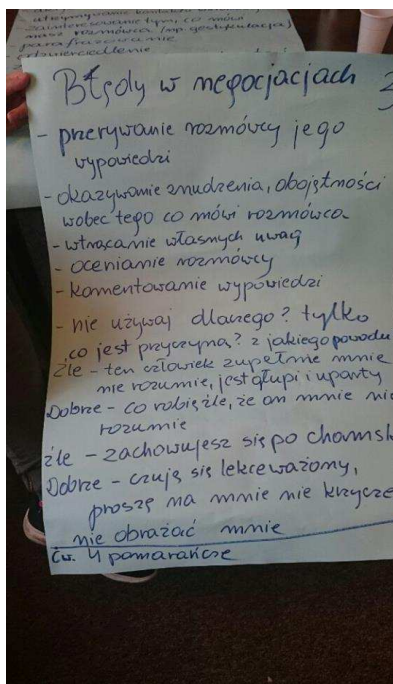 utrzymywanie kontaktu
zainteresowanie tym, co mówi
nasz rozmówca (np. gestykulacja)
- parafrazowanie
odzwierciedlenie
Błędy w negocjacjach 3
- przerywanie rozmówcy jego
wypowiedzi
- okazywanie znudzenia, obojętności
wobec tego co mówi rozmówca
- wtrącanie własnych uwag
- ocenianie rozmówcy
- komentowanie wypowiedzi
- nie używaj dlaczego? tylko
co jest przyczyną? z jakiego powodu
Źle - ten człowiek zupełnie mnie
nie rozumie, jest głupi i uparty
Dobrze - co robię źle, że on mnie nie
rozumie
źle - zachowujesz się po chamsk
Dobrze - czuję się lekceważony,
proszę na mnie nie krzycze
nie obrażać mnie
Ćw. 4 pomarańcze